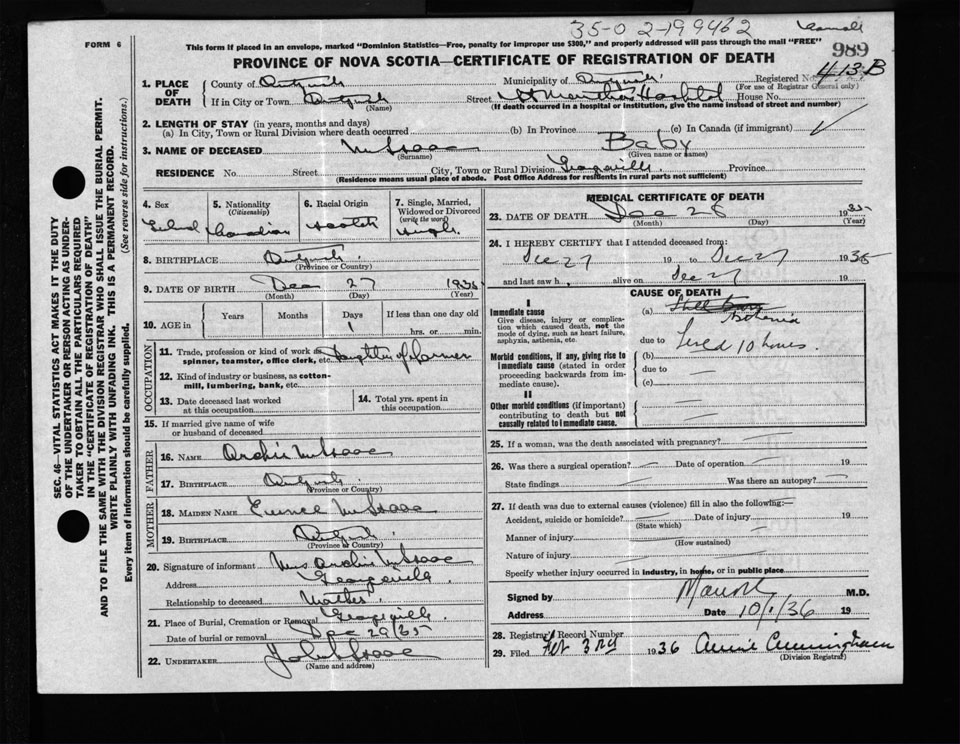 35-0 2-199462
FORM 6
This form if placed in an envelope, marked "Dominion Statistics—Free, penalty for improper use $300," and properly addressed will pass through the mail "FREE"
989
PROVINCE OF NOVA SCOTIA—CERTIFICATE OF REGISTRATION OF DEATH
413-B
1. PLACE OF DEATH
County of Antigonish
Municipality of Antigonish
Registered No.
(For use of Registrar General only)
If in City or Town Antigonish
(Name)
Street St Martha's Hospital House No.
(If death occurred in a hospital or institution, give the name instead of street and number)
2. LENGTH OF STAY (in years, months and days)
(a) In City, Town or Rural Division where death occurred (b) In Province (c) In Canada (if immigrant)
3. NAME OF DECEASED McIsaac Baby
(Surname) (Given name or names)
RESIDENCE No. Street City, Town or Rural Division Georgeville Province
(Residence means usual place of abode. Post Office Address for residents in rural parts not sufficient)
SEC. 46—VITAL STATISTICS ACT MAKES IT THE DUTY
OF THE UNDERTAKER OR PERSON ACTING AS UNDER-
TAKER TO OBTAIN ALL THE PARTICULARS REQUIRED
IN THE "CERTIFICATE OF REGISTRATION OF DEATH"
AND TO FILE THE SAME WITH THE DIVISION REGISTRAR WHO SHALL ISSUE THE BURIAL PERMIT.
WRITE PLAINLY WITH UNFADING INK. THIS IS A PERMANENT RECORD.
Every item of information should be carefully supplied. (See reverse side for instructions.)
4. Sex
5. Nationality
(Citizenship)
Canadian
6. Racial Origin
Scotch
7. Single, Married, Widowed or Divorced
(write the word)
Single
8. BIRTHPLACE Antigonish
(Province or Country)
9. DATE OF BIRTH Dec 27 1935
(Month) (Day) (Year)
10. AGE in
Years
Months
Days
1
If less than one day old
hrs. or min.
OCCUPATION
11. Trade, profession or kind of work as spinner, teamster, office clerk, etc. Daughter of farmer
12. Kind of industry or business, as cotton-mill, lumbering, bank, etc.
13. Date deceased last worked at this occupation
14. Total yrs. spent in this occupation
15. If married give name of wife or husband of deceased
FATHER
16. NAME Archie McIsaac
17. BIRTHPLACE Antigonish
(Province or Country)
MOTHER
18. MAIDEN NAME Eunice McIsaac
19. BIRTHPLACE Antigonish
(Province or Country)
20. Signature of informant Mrs Archie McIsaac
Address Georgeville
Relationship to deceased Mother
21. Place of Burial, Cremation or Removal Georgeville
Date of burial or removal Dec 29/35
22. UNDERTAKER
(Name and address)
MEDICAL CERTIFICATE OF DEATH
23. DATE OF DEATH Dec 28 1935
(Month) (Day) (Year)
24. I HEREBY CERTIFY that I attended deceased from:
Dec 27 19 to Dec 27 1935
and last saw h alive on Dec 27 19
CAUSE OF DEATH
I
Immediate cause
Give disease, injury or complication which caused death, not the mode of dying, such as heart failure, asphyxia, asthenia, etc.
(a)
due to Lived 10 hours.
Morbid conditions, if any, giving rise to Immediate cause (stated in order proceeding backwards from immediate cause).
(b)
due to
(c)
II
Other morbid conditions (if important) contributing to death but not causally related to Immediate cause.
25. If a woman, was the death associated with pregnancy?
26. Was there a surgical operation? Date of operation 19
State findings Was there an autopsy?
27. If death was due to external causes (violence) fill in also the following:—
Accident, suicide or homicide? Date of injury 19
(State which)
Manner of injury
(How sustained)
Nature of injury
Specify whether injury occurred in industry, in home, or in public place
Signed by M.D.
Address Date 10/1/36 19
28. Registrar's Record Number
29. Filed Feb 3rd 1936 Annie Cunningham
(Division Registrar)